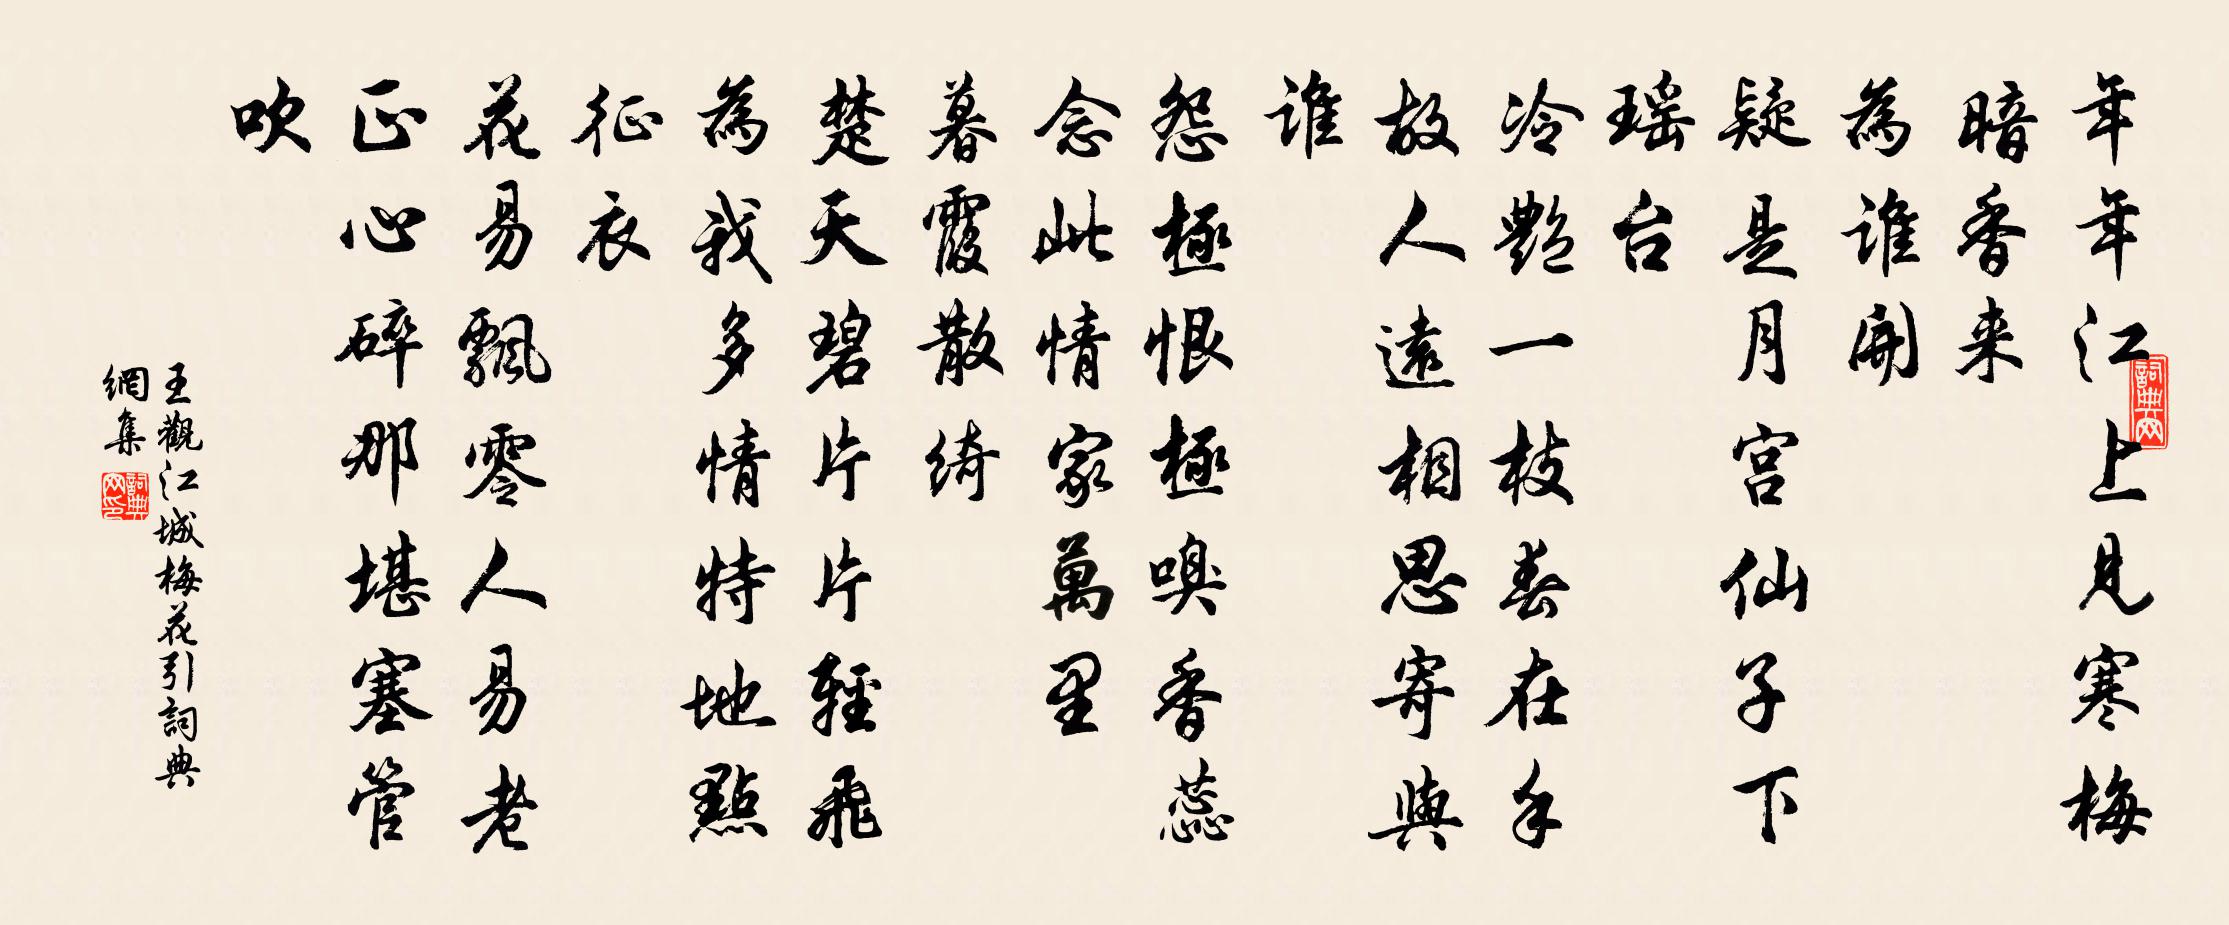 年年江上見寒梅
暗香来
為誰開
疑是月宫仙子下
瑶台
冷艷一枝春在手
故人遠相思寄與
誰
怨極恨極嗅香蕊
念此情家萬里
暮霞散綺
楚天碧片片輕飛
為我多情特地點
征衣
花易飄零人易老
正心碎那堪塞管
吹
王觀江城梅花引詞典
網集
詞典网
詞典网印